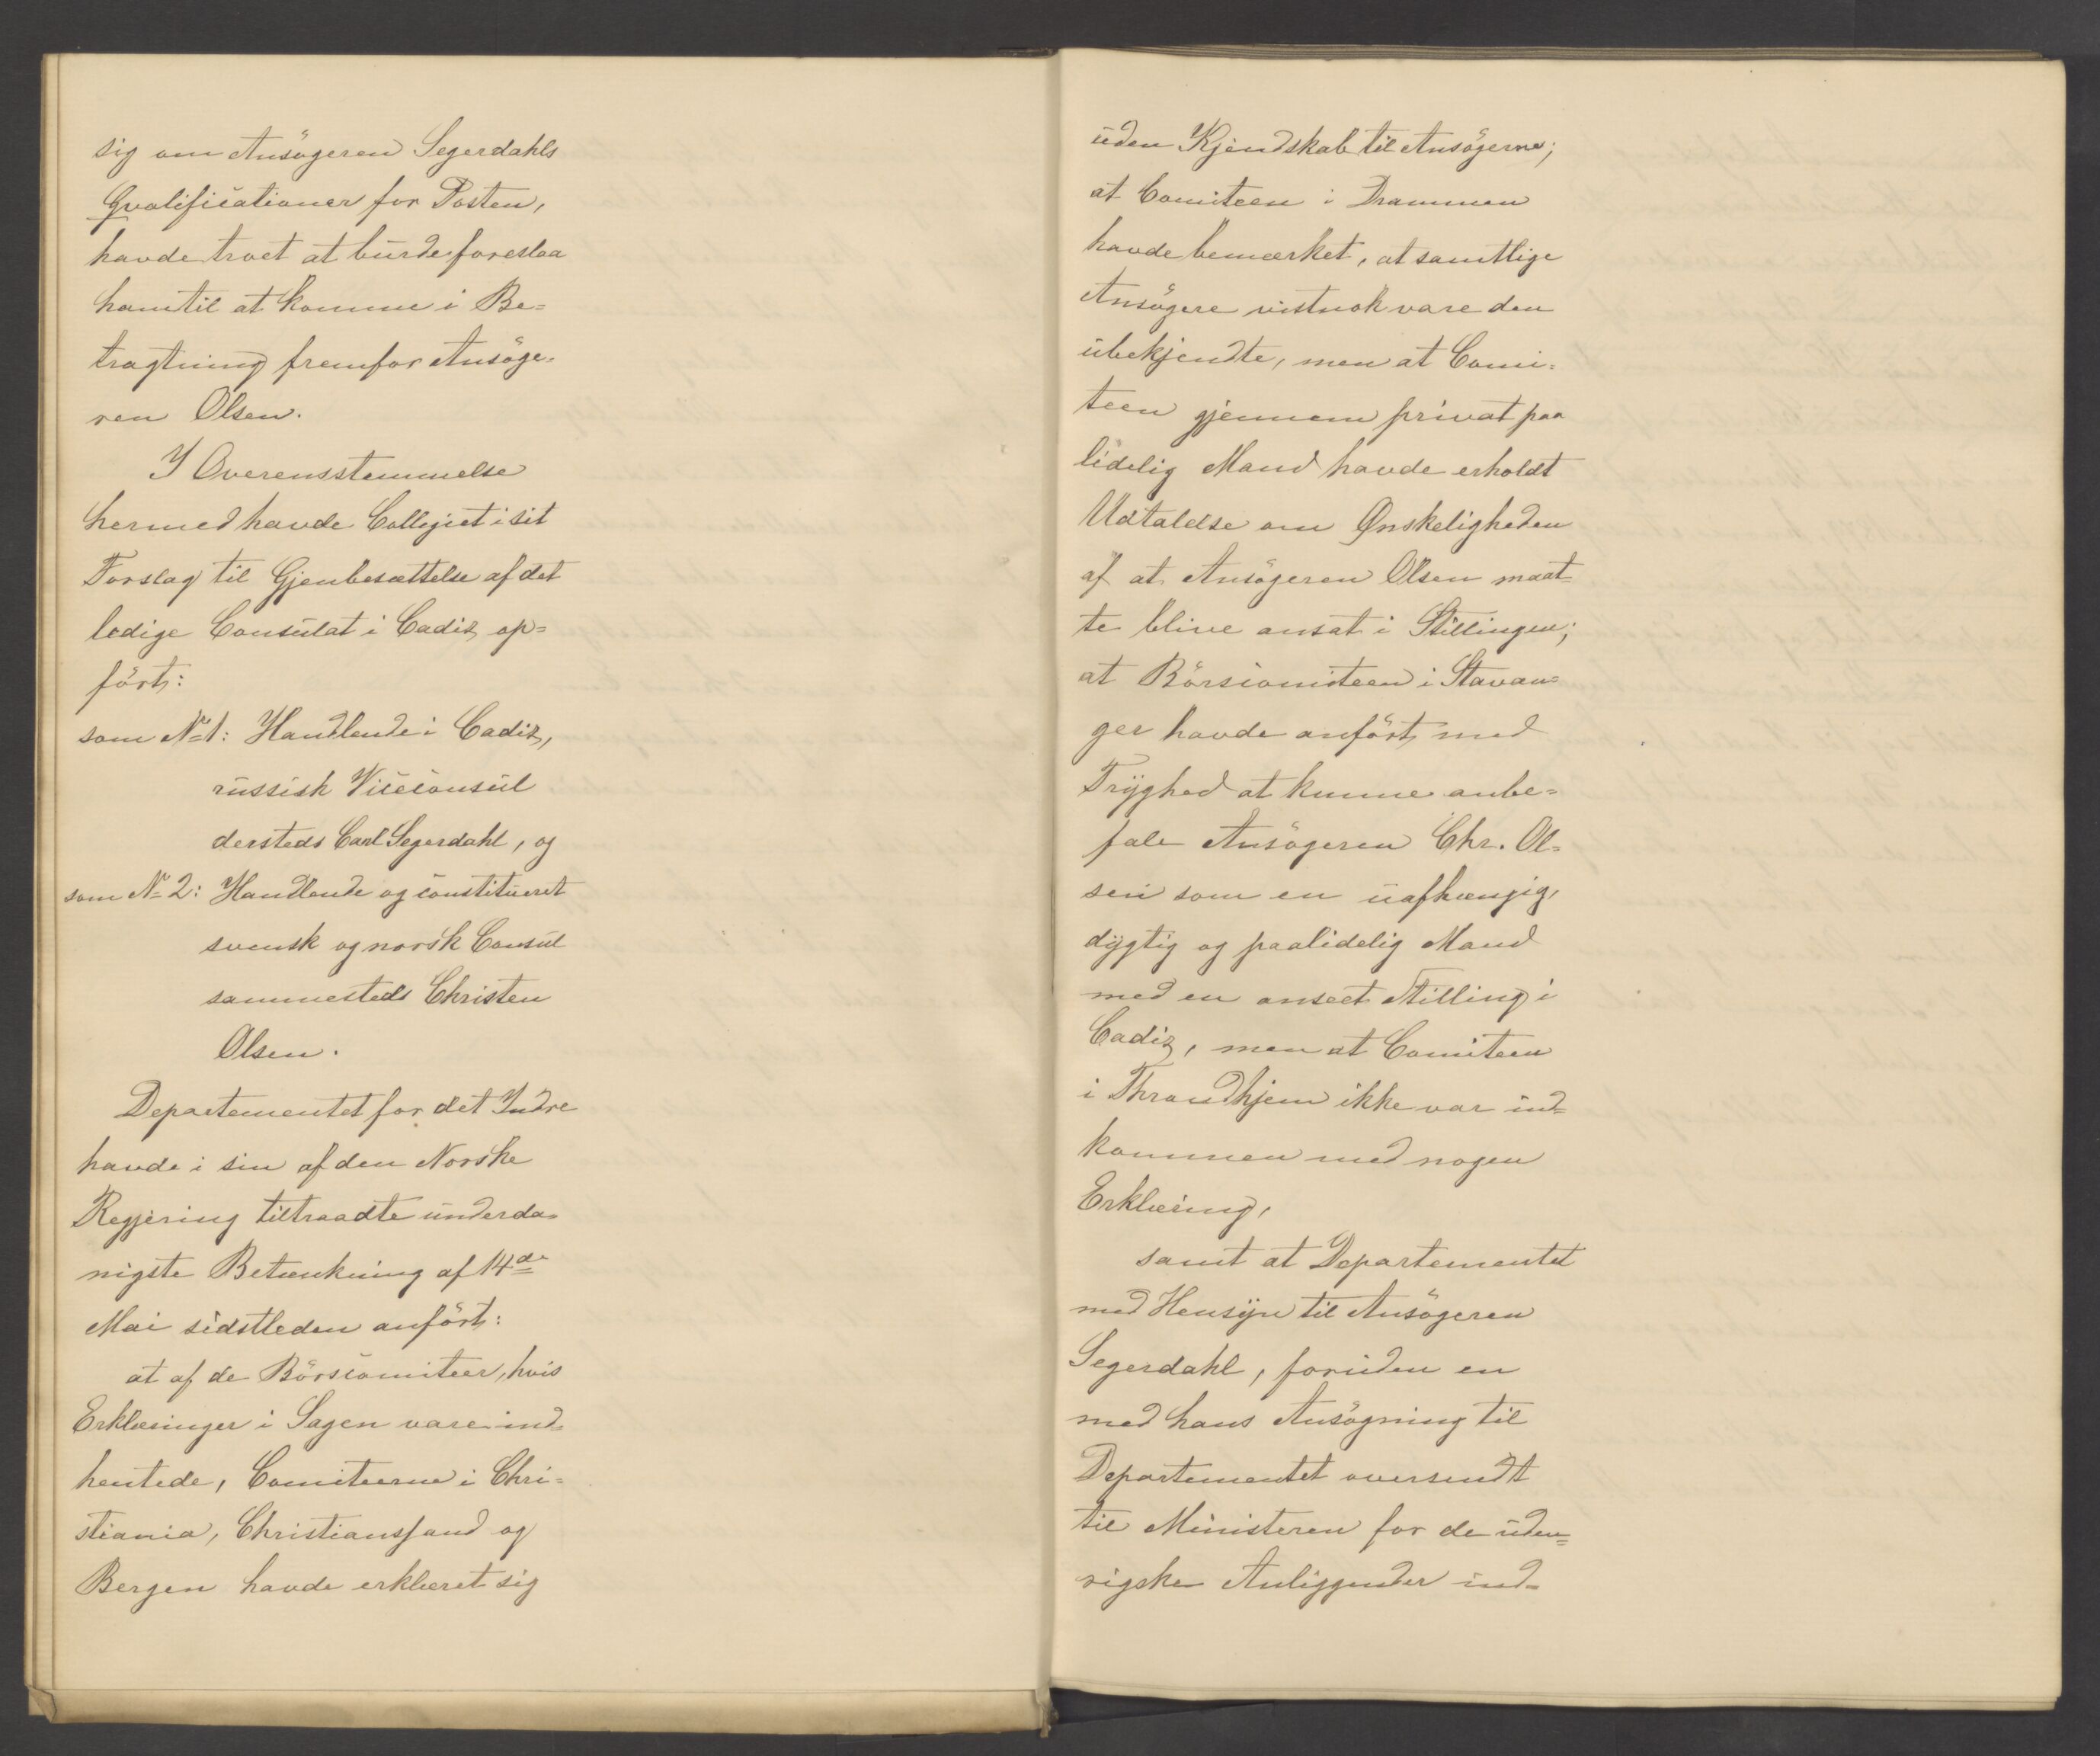 sig om Ansøgeren Segerdahls
Qvalificationer for Posten,
havde troet at burde foreslaa
ham til at komme i Be=
tragtning fremfor Ansøge=
ren Olsen.
I Overensstemmelse
hermed havde Collegiet i sit
Forslag til Gjenbesættelse af det
ledige Consulat i Cadiz op=
ført:
som No 1: Handlende i Cadiz,
russisk Viceconsul
dersteds Carl Segerdahl, og
som No 2: Handlende og constitueret
svensk og norsk Consul
sammesteds Christen
Olsen.
Departementet for det Indre
havde i sin af den Norske
Regjering tiltraadte underda=
nigste Betænkning af 14de
Mai sidstleden anført:
at af de Børscomiteer, hvis
Erklæringer i Sagen vare ind=
hentede, Comiteerne i Chri=
stiania, Christianssand og
Bergen havde erklæret sig
uden Kjendskab til Ansøgerne;
at Comiteen i Drammen
havde bemærket, at samtlige
Ansøgere vistnok vare den
ubekjendte, men at Comi=
teen gjennem privat paa
lidelig Mand havde erholdt
Udtalelse om Ønskeligheden
af at Ansøgeren Olsen maat=
te blive ansat i Stillingen;
at Børscomiteen i Stavan=
ger havde anført med
Tryghed at kunne anbe=
fale Ansøgeren Chr. Ol=
sen som en uafhængig,
dygtig og paalidelig Mand
med en anseet Stilling i
Cadiz, men at Comiteen
i Throndhjem ikke var ind=
kommen med nogen
Erklæring,
samt at Departementet
med Hensyn til Ansøgeren
Segerdahl, foruden en
med hans Ansøgning til
Departementet oversendt
til Ministeren for de uden=
rigske Anliggender ind=